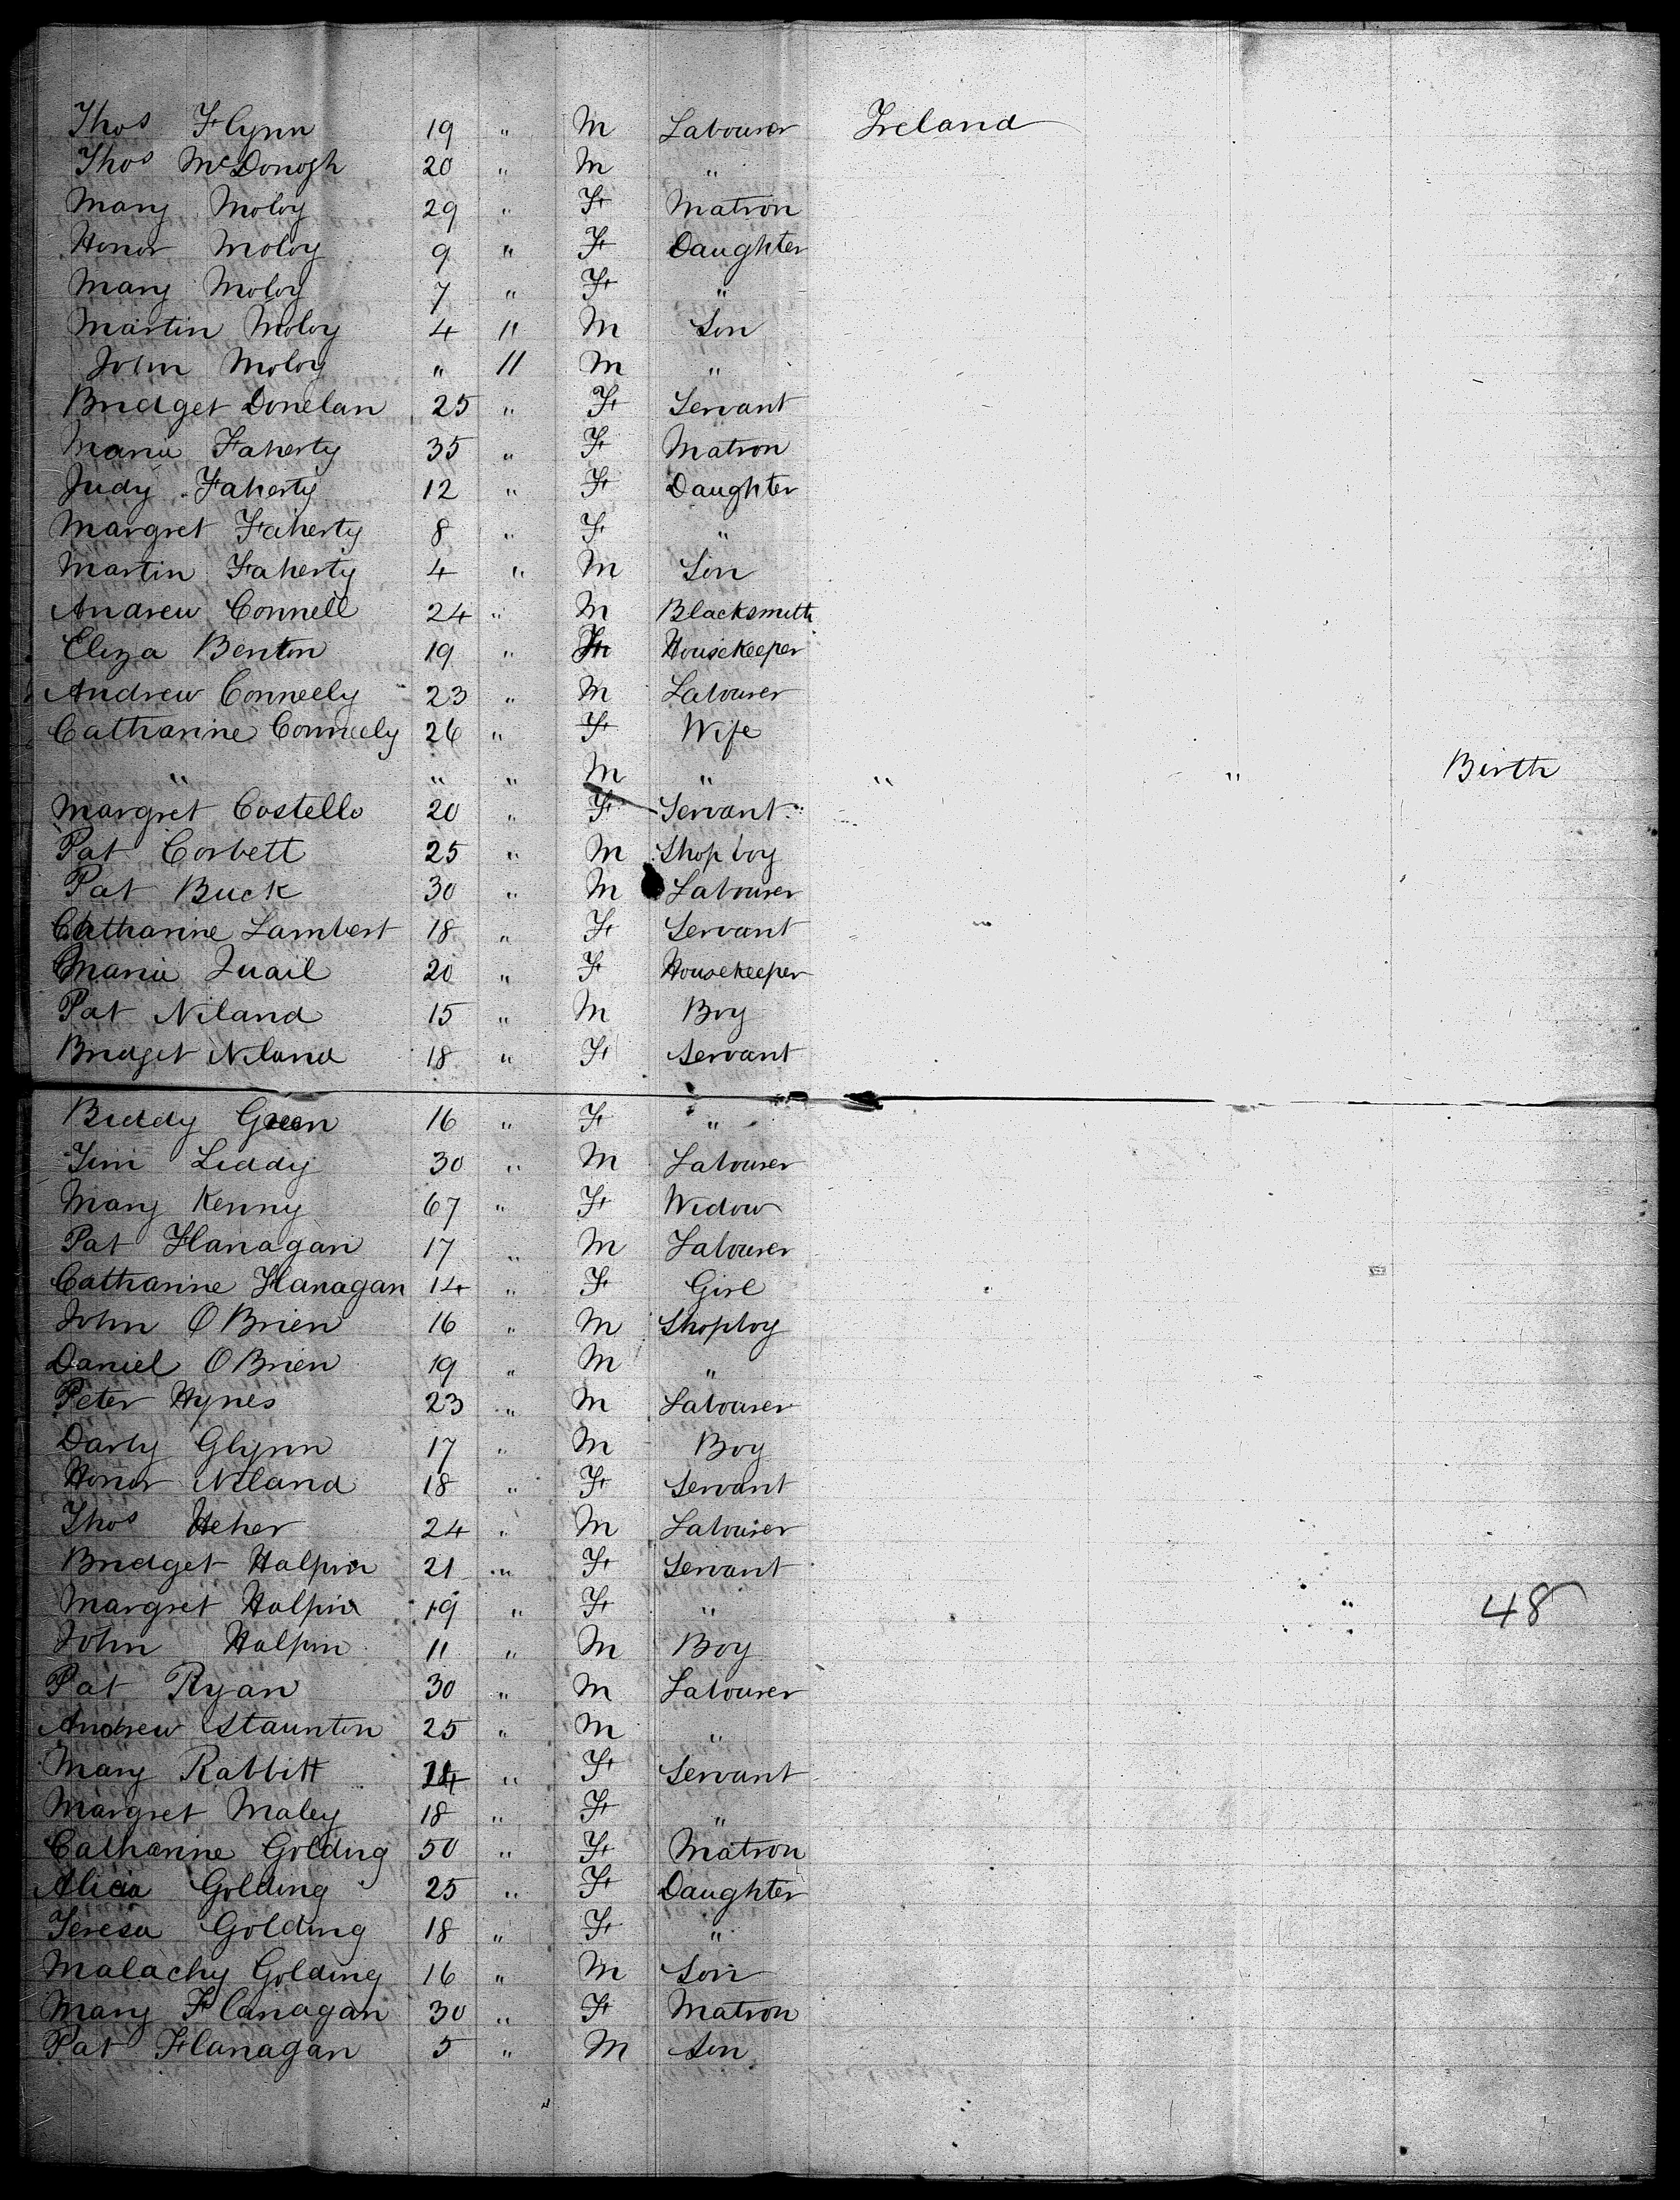 Thos Flynn 19 " M Labourer Ireland
Thos McDonogh 20 " M "
Mary Moloy 29 " F Matron
Honor Moloy 9 " F Daughter
Mary Moloy 7 " F "
Martin Moloy 4 11 M Son
John Moloy " 11 M "
Bridget Donelan 25 " F Servant
Maria Faherty 35 " F Matron
Judy Faherty 12 " F Daughter
Margret Faherty 8 " F "
Martin Faherty 4 " M Son
Andrew Connell 24 " M Blacksmith
Eliza Benton 19 " F Housekeeper
Andrew Conneely 23 " M Labourer
Catharine Conneely 26 " F Wife
" " " M " " " Birth
Margret Costello 20 " F Servant
Pat Corbett 25 " M Shop boy
Pat Buck 30 " M Labourer
Catharine Lambert 18 " F Servant
Maria Quail 20 " F Housekeeper
Pat Niland 15 " M Boy
Bridget Niland 18 " F Servant
Biddy Green 16 " F "
Tim Liddy 30 " M Labourer
Mary Kenny 67 " F Widow
Pat Flanagan 17 " M Labourer
Catharine Flanagan 14 " F Girl
John O Brien 16 " M Shopboy
Daniel O Brien 19 " M "
Peter Hynes 23 " M Labourer
Darby Glynn 17 " M Boy
Honor Niland 18 " F Servant
Thos Heher 24 " M Labourer
Bridget Halpin 21 " F Servant
Margret Halpin 19 " F " " 48
John Halpin 11 " M Boy
Pat Ryan 30 " M Labourer
Andrew Staunton 25 " M "
Mary Rabbitt 24 " F Servant
Margret Maley 18 " F "
Catharine Golding 50 " F Matron
Alicia Golding 25 " F Daughter
Teresa Golding 18 " F "
Malachy Golding 16 " M Son
Mary Flanagan 30 " F Matron
Pat Flanagan 5 " M Son